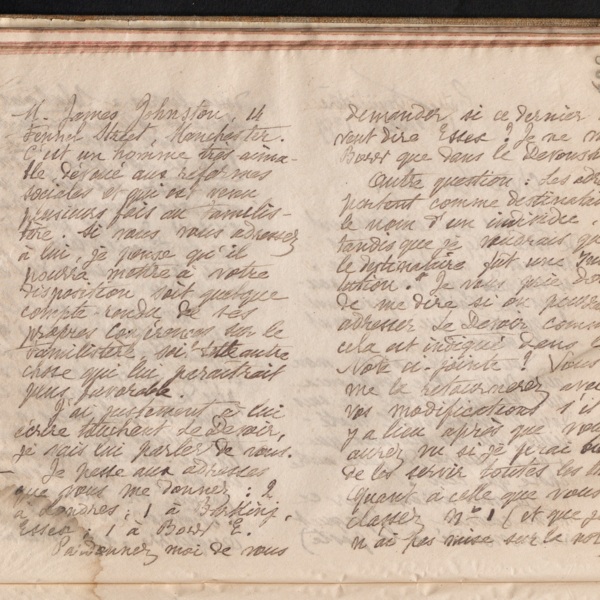 M. James Johnston, 14
Fennel Street, Manchester.
C'est un homme très aima-
ble, dévoué aux réformes
sociales et qui est venu
plusieurs fois au familis-
tère. Si vous vous adressez
à lui, je pense qu'il
pourra mettre à votre
disposition soit quelque
compte-rendu de ses
propres causeries sur le
familistère, soit telle autre
chose qui lui paraîtrait
plus favorable.
J'ai justement à lui
écrire touchant le Devoir,
je vais lui parler de vous.
Je passe aux adresses
que vous me donnez : 2
à Londres ; 1 à Barking,
Essex ; 1 à Bow E.
Pardonnez moi de vous
demander si ce dernier
veut dire Essex ? Je ne
que dans le
Autre question : Les adre
portent comme destinatai
le nom d'un individu,
tandis que je voudrais qu
le destinataire fut une
lation. Je vous prie do
de me dire si on peut
adresser Le Devoir comm
cela est indiqué dans l
Note ci-jointe ? Vous
me la retournerez avec
vos modifications s'il
y a lieu après que vou
aurez vu si je
de les servir toutes les
Quant à celle que vous
classez Nº 1 (et que j
n'ai pas mise sur la no